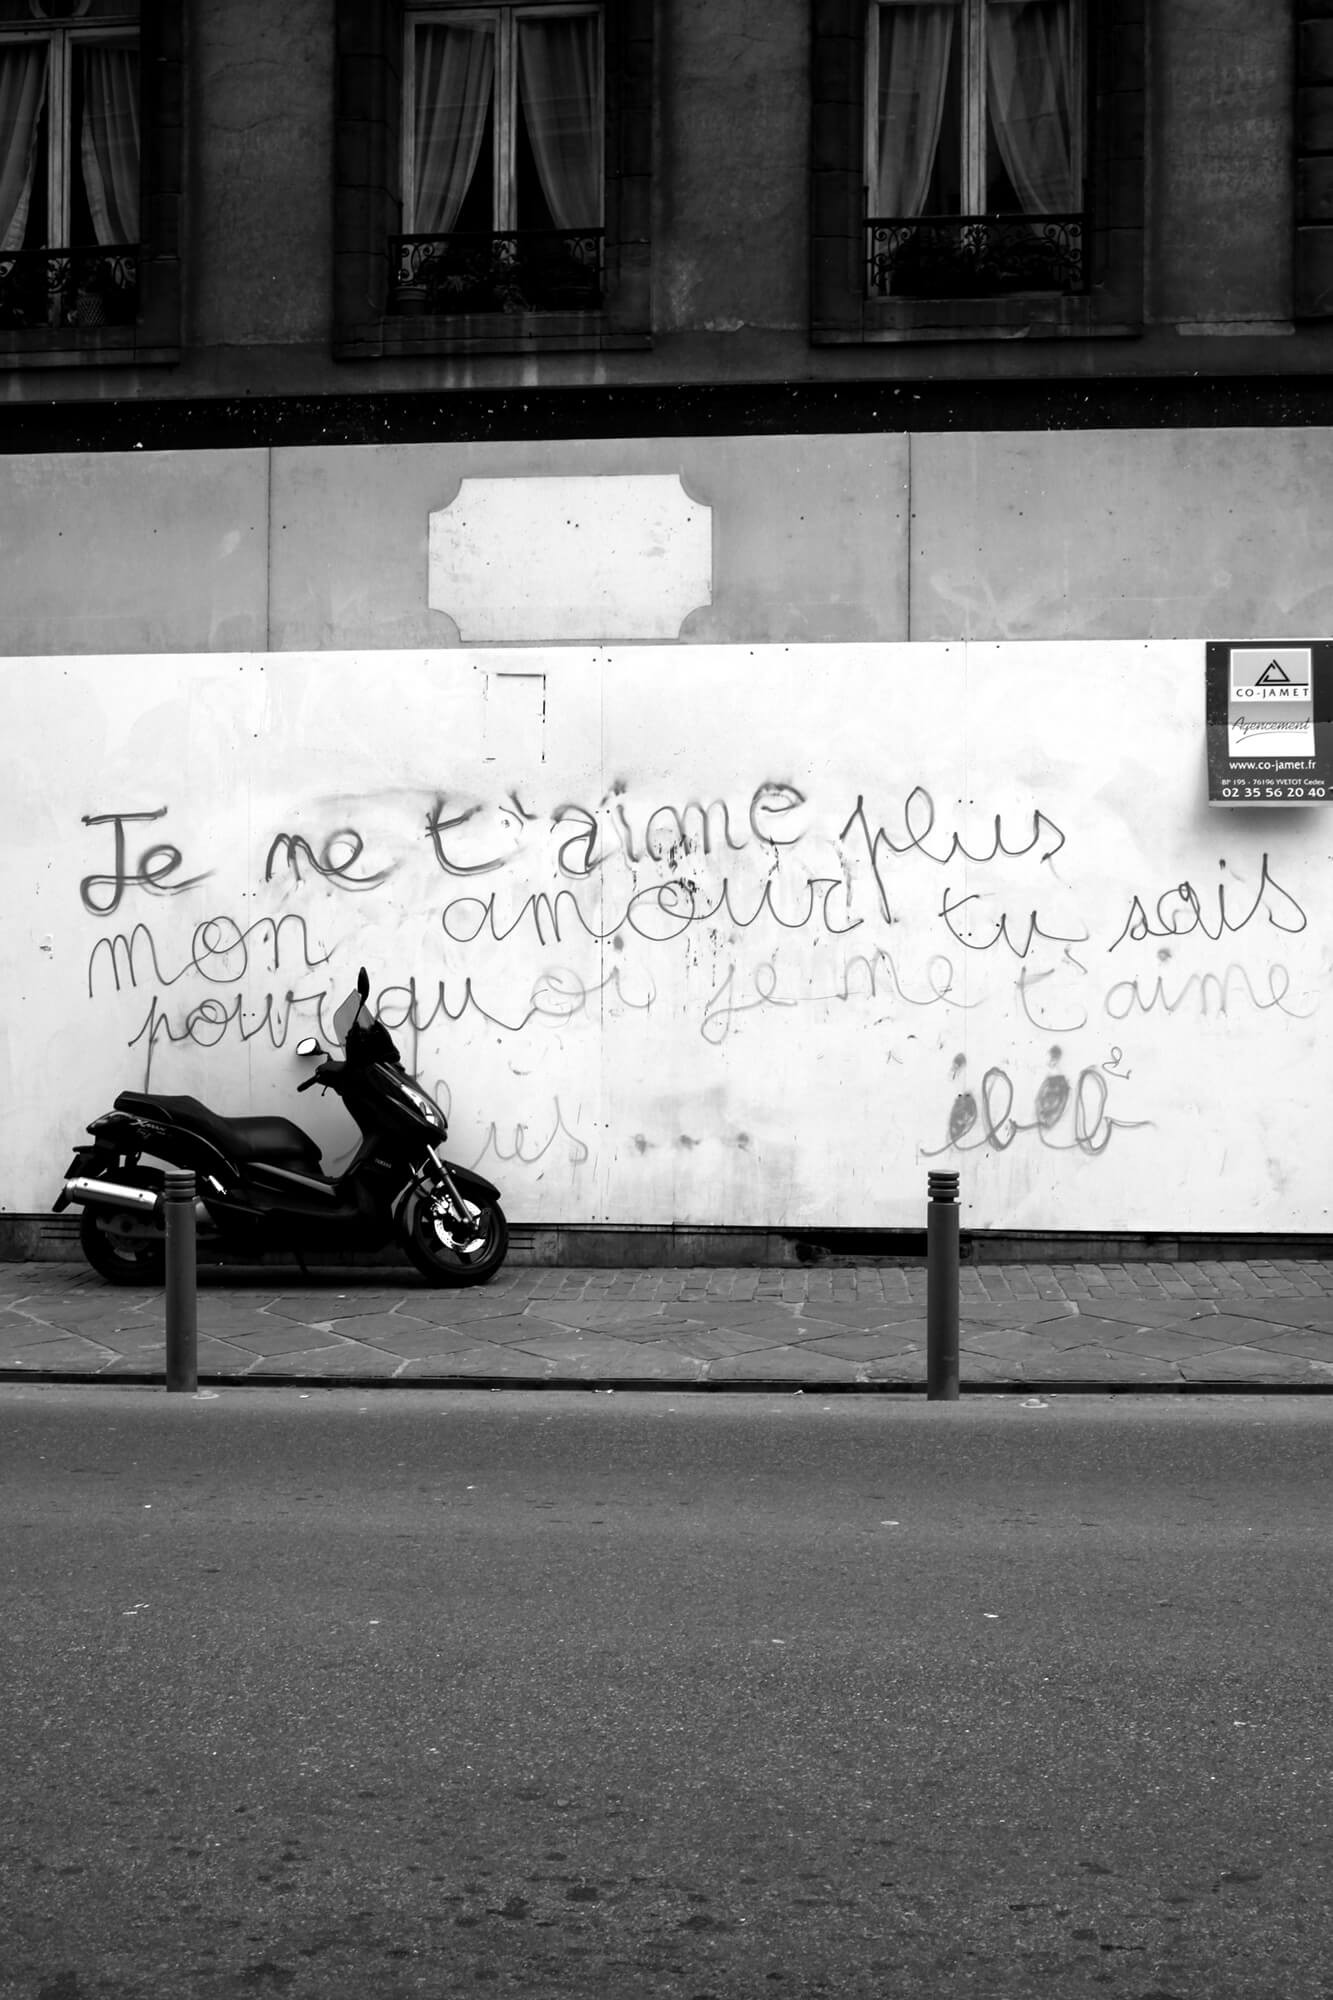 CO-JAMET
Agencement
www.co-jamet.fr
BP 195 - 76196 YVETOT Cedex
02 35 56 20 40
Je ne t'aime plus
mon amour tu sais
pourquoi je ne t'aime
plus ...
YAMAHA